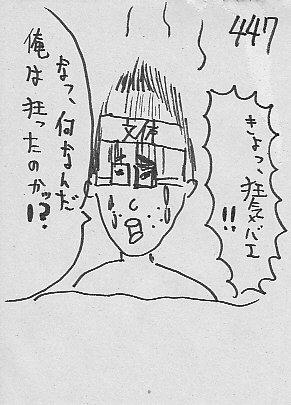 447
きょっ、狂気バエ
!!
なっ、何なんだ
俺は狂ったのかッ!?
文体